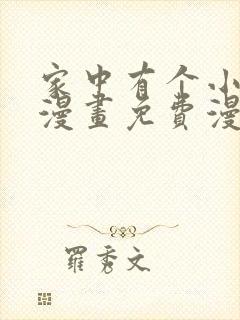 家中有个小
漫畫免費漫
羅秀文